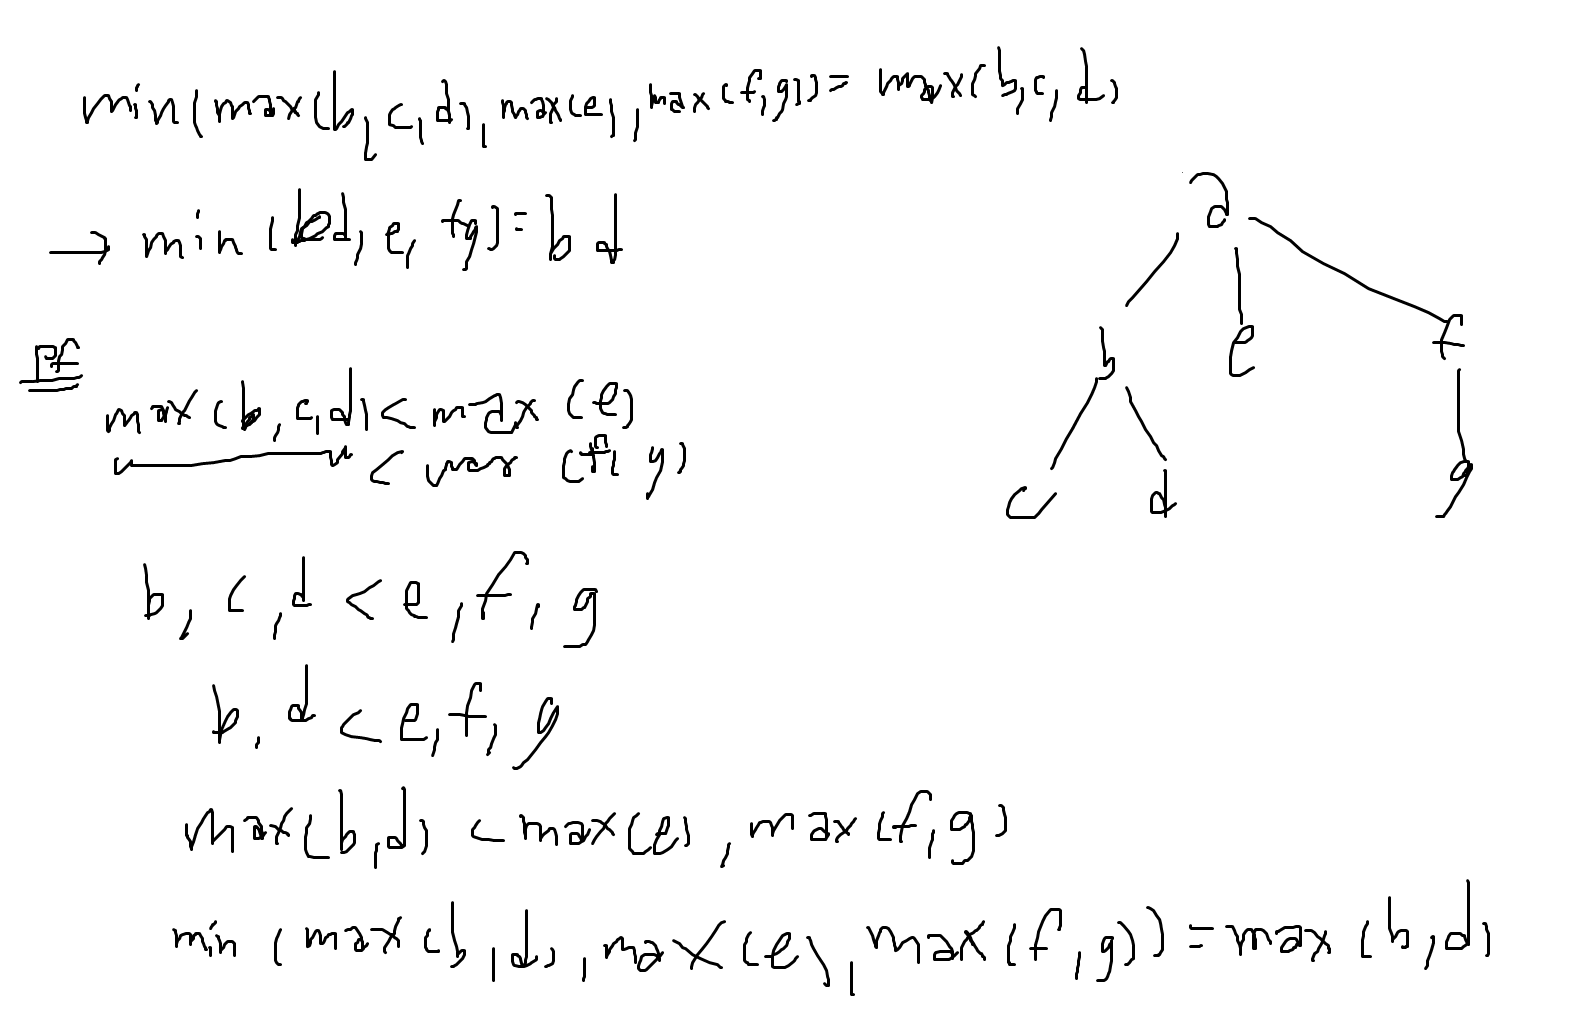 min(max(b,c,d),max(e),max(f,g))=max(b,c,d)
→ min(bd,e,fg)=bd
pf
max(b,c,d)<max(e)
<max(f,g)
b,c,d<e,f,g
b,d<e,f,g
max(b,d)<max(e),max(f,g)
min(max(b,d),max(e),max(f,g))=max(b,d)
a
b e f
c d g